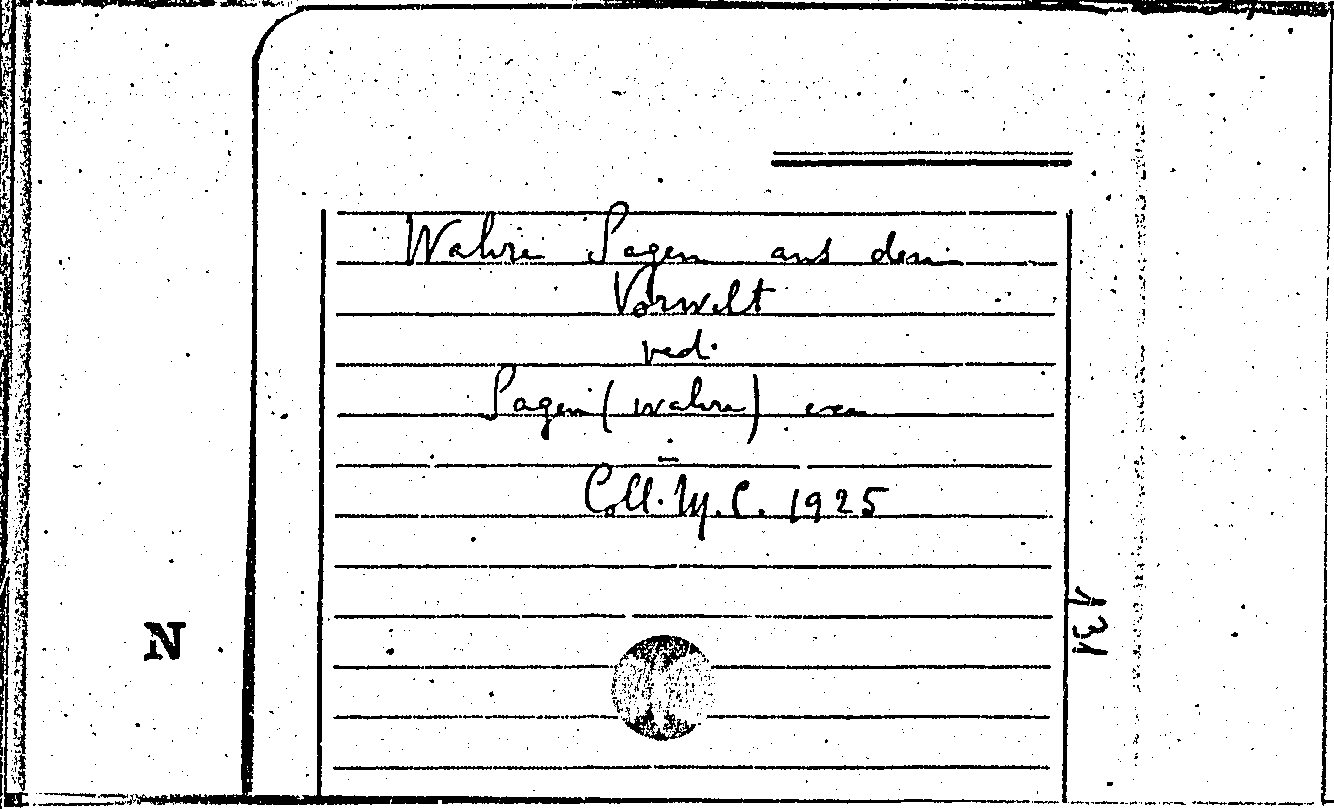 Wahre Sagen aus der
Vorwelt
ved.
Sagen (wahre) ecc
-
Coll. M. C. 1925
N
131